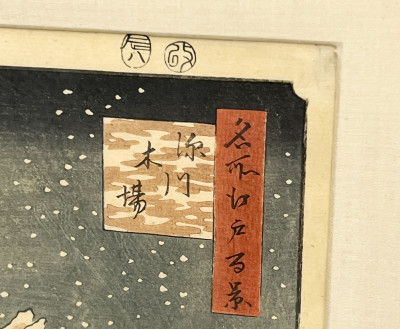 名所江戸百景
深川
木場
改